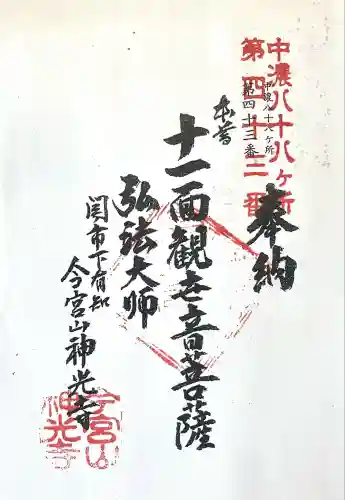 中濃八十八ヶ所
第四十三番
中濃八十八ヶ所
第四十三番
奉納
本尊
十一面観世音菩薩
弘法大師
関市下有知
今宮山神光寺
今宮山
神光寺